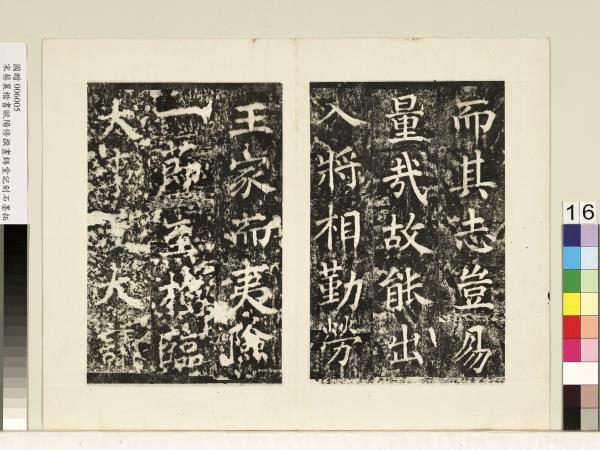 而其志豈易
量哉故能出
入將相勤勞
王家而夷險
一節至於臨
大事決大議
國贈 006005
宋蔡襄楷書歐陽修撰晝錦堂記刻石墨拓
16